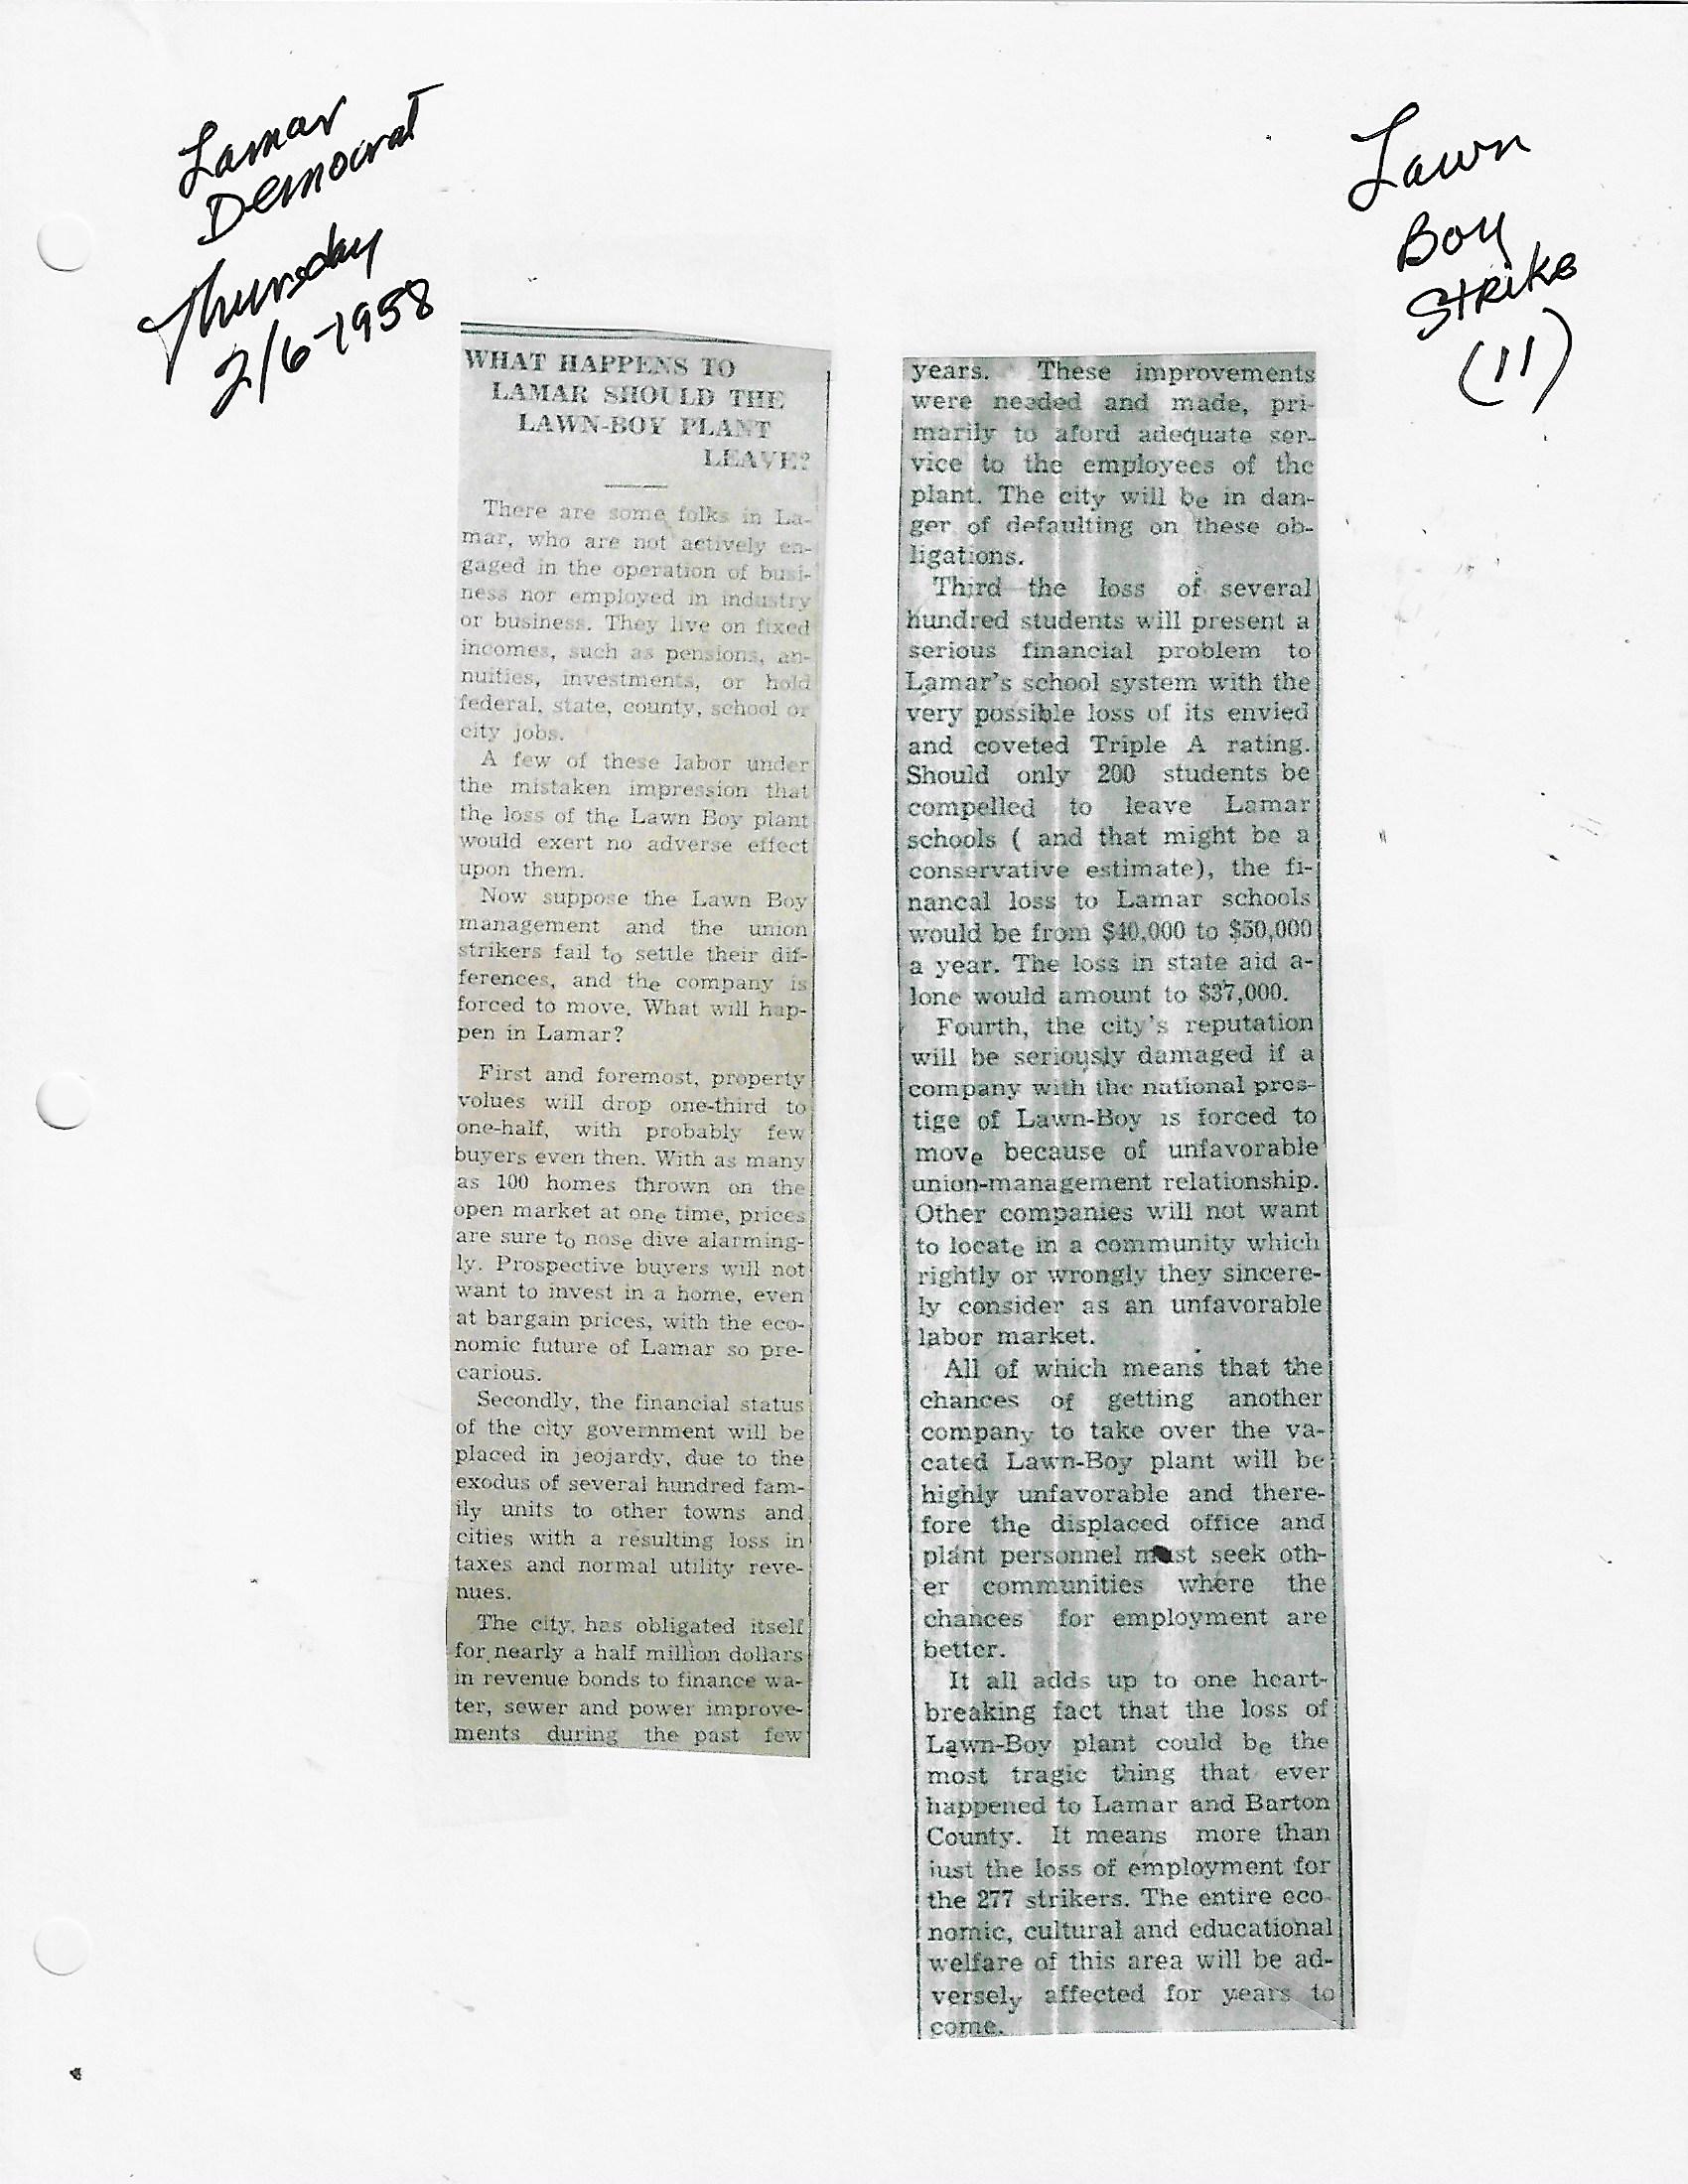 Lamar
Democrat
Thursday
2/6-1958
Lawn
Boy
Strike
(11)
WHAT HAPPENS TO
LAMAR SHOULD THE
LAWN-BOY PLANT
LEAVE?
There are some folks in La-
mar, who are not actively en-
gaged in the operation of busi-
ness nor employed in industry
or business. They live on fixed
incomes, such as pensions, an-
nuities, investments, or hold
federal, state, county, school or
city jobs.
A few of these labor under
the mistaken impression that
the loss of the Lawn Boy plant
would exert no adverse effect
upon them.
Now suppose the Lawn Boy
management and the union
strikers fail to settle their dif-
ferences, and the company is
forced to move. What will hap-
pen in Lamar?
First and foremost, property
volues will drop one-third to
one-half, with probably few
buyers even then. With as many
as 100 homes thrown on the
open market at one time, prices
are sure to nose dive alarming-
ly. Prospective buyers will not
want to invest in a home, even
at bargain prices, with the eco-
nomic future of Lamar so pre-
carious.
Secondly, the financial status
of the city government will be
placed in jeojardy, due to the
exodus of several hundred fam-
ily units to other towns and
cities with a resulting loss in
taxes and normal utility reve-
nues.
The city has obligated itself
for nearly a half million dollars
in revenue bonds to finance wa-
ter, sewer and power improve-
ments during the past few
years. These improvements
were needed and made, pri-
marily to aford adequate ser-
vice to the employees of the
plant. The city will be in dan-
ger of defaulting on these ob-
ligations.
Third the loss of several
hundred students will present a
serious financial problem to
Lamar's school system with the
very possible loss of its envied
and coveted Triple A rating.
Should only 200 students be
compelled to leave Lamar
schools ( and that might be a
conservative estimate), the fi-
nancal loss to Lamar schools
would be from $40,000 to $50,000
a year. The loss in state aid a-
lone would amount to $37,000.
Fourth, the city's reputation
will be seriously damaged if a
company with the national pres-
tige of Lawn-Boy is forced to
move because of unfavorable
union-management relationship.
Other companies will not want
to locate in a community which
rightly or wrongly they sincere-
ly consider as an unfavorable
labor market.
All of which means that the
chances of getting another
company to take over the va-
cated Lawn-Boy plant will be
highly unfavorable and there-
fore the displaced office and
plant personnel must seek oth-
er communities where the
chances for employment are
better.
It all adds up to one heart-
breaking fact that the loss of
Lawn-Boy plant could be the
most tragic thing that ever
happened to Lamar and Barton
County. It means more than
just the loss of employment for
the 277 strikers. The entire eco-
nomic, cultural and educational
welfare of this area will be ad-
versely affected for years to
come.